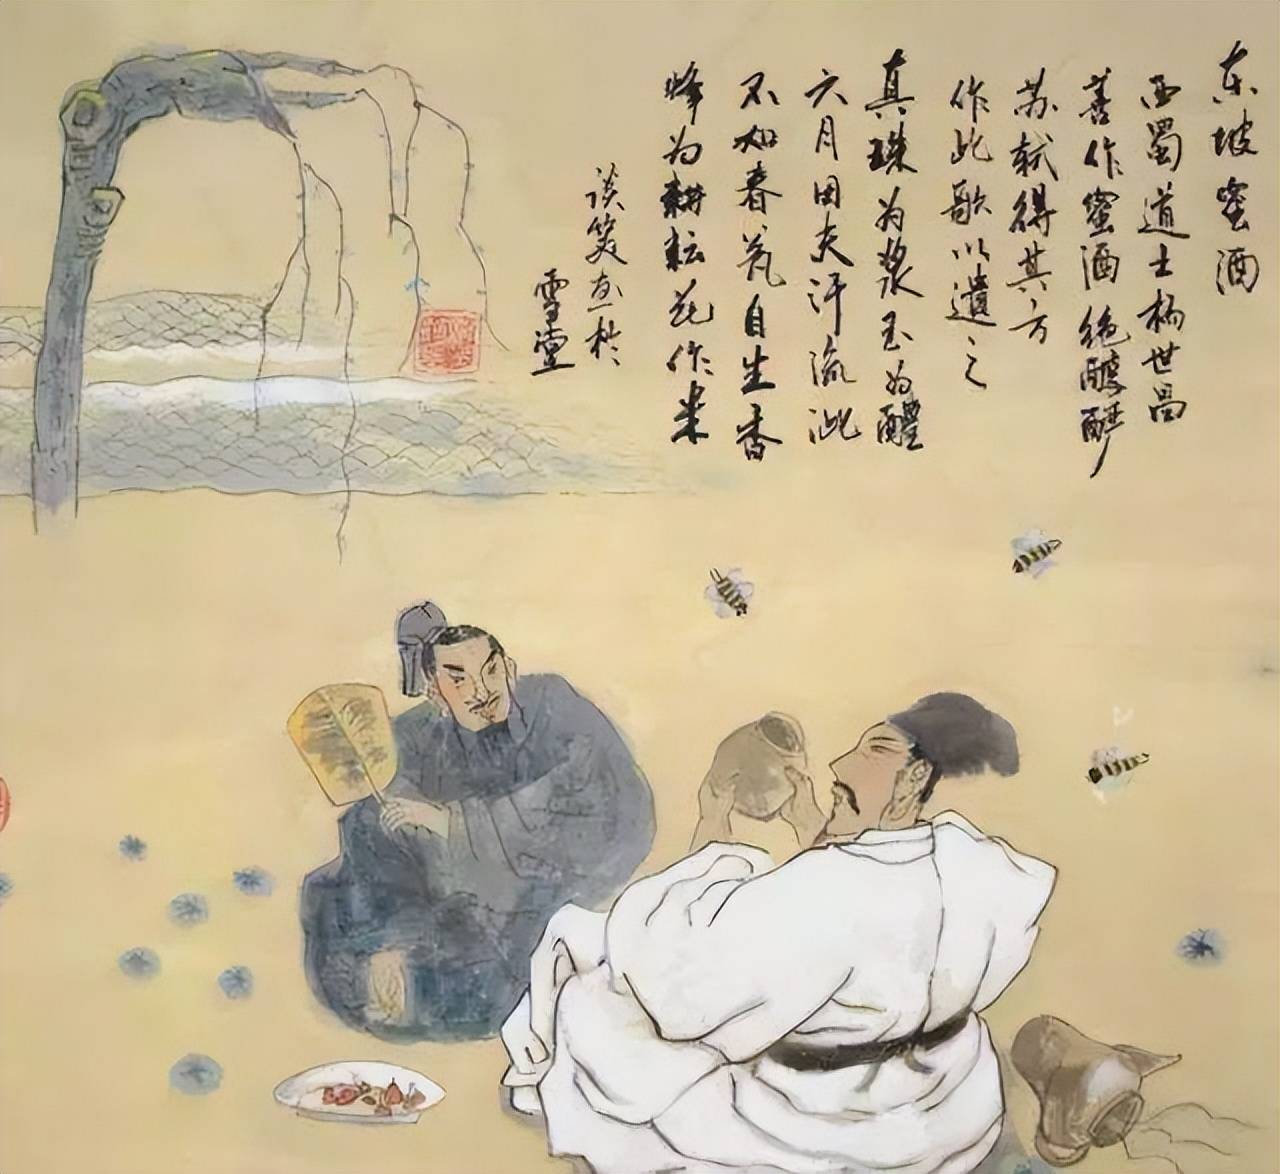 东坡蜜酒
西蜀道士杨世昌
善作蜜酒绝醇酽
苏轼得其方
作此歌以遺之
真珠为浆玉为醴
六月田夫汗流泚
不如春瓮自生香
蜂为耕耘花作米
谈笑画於
雪堂